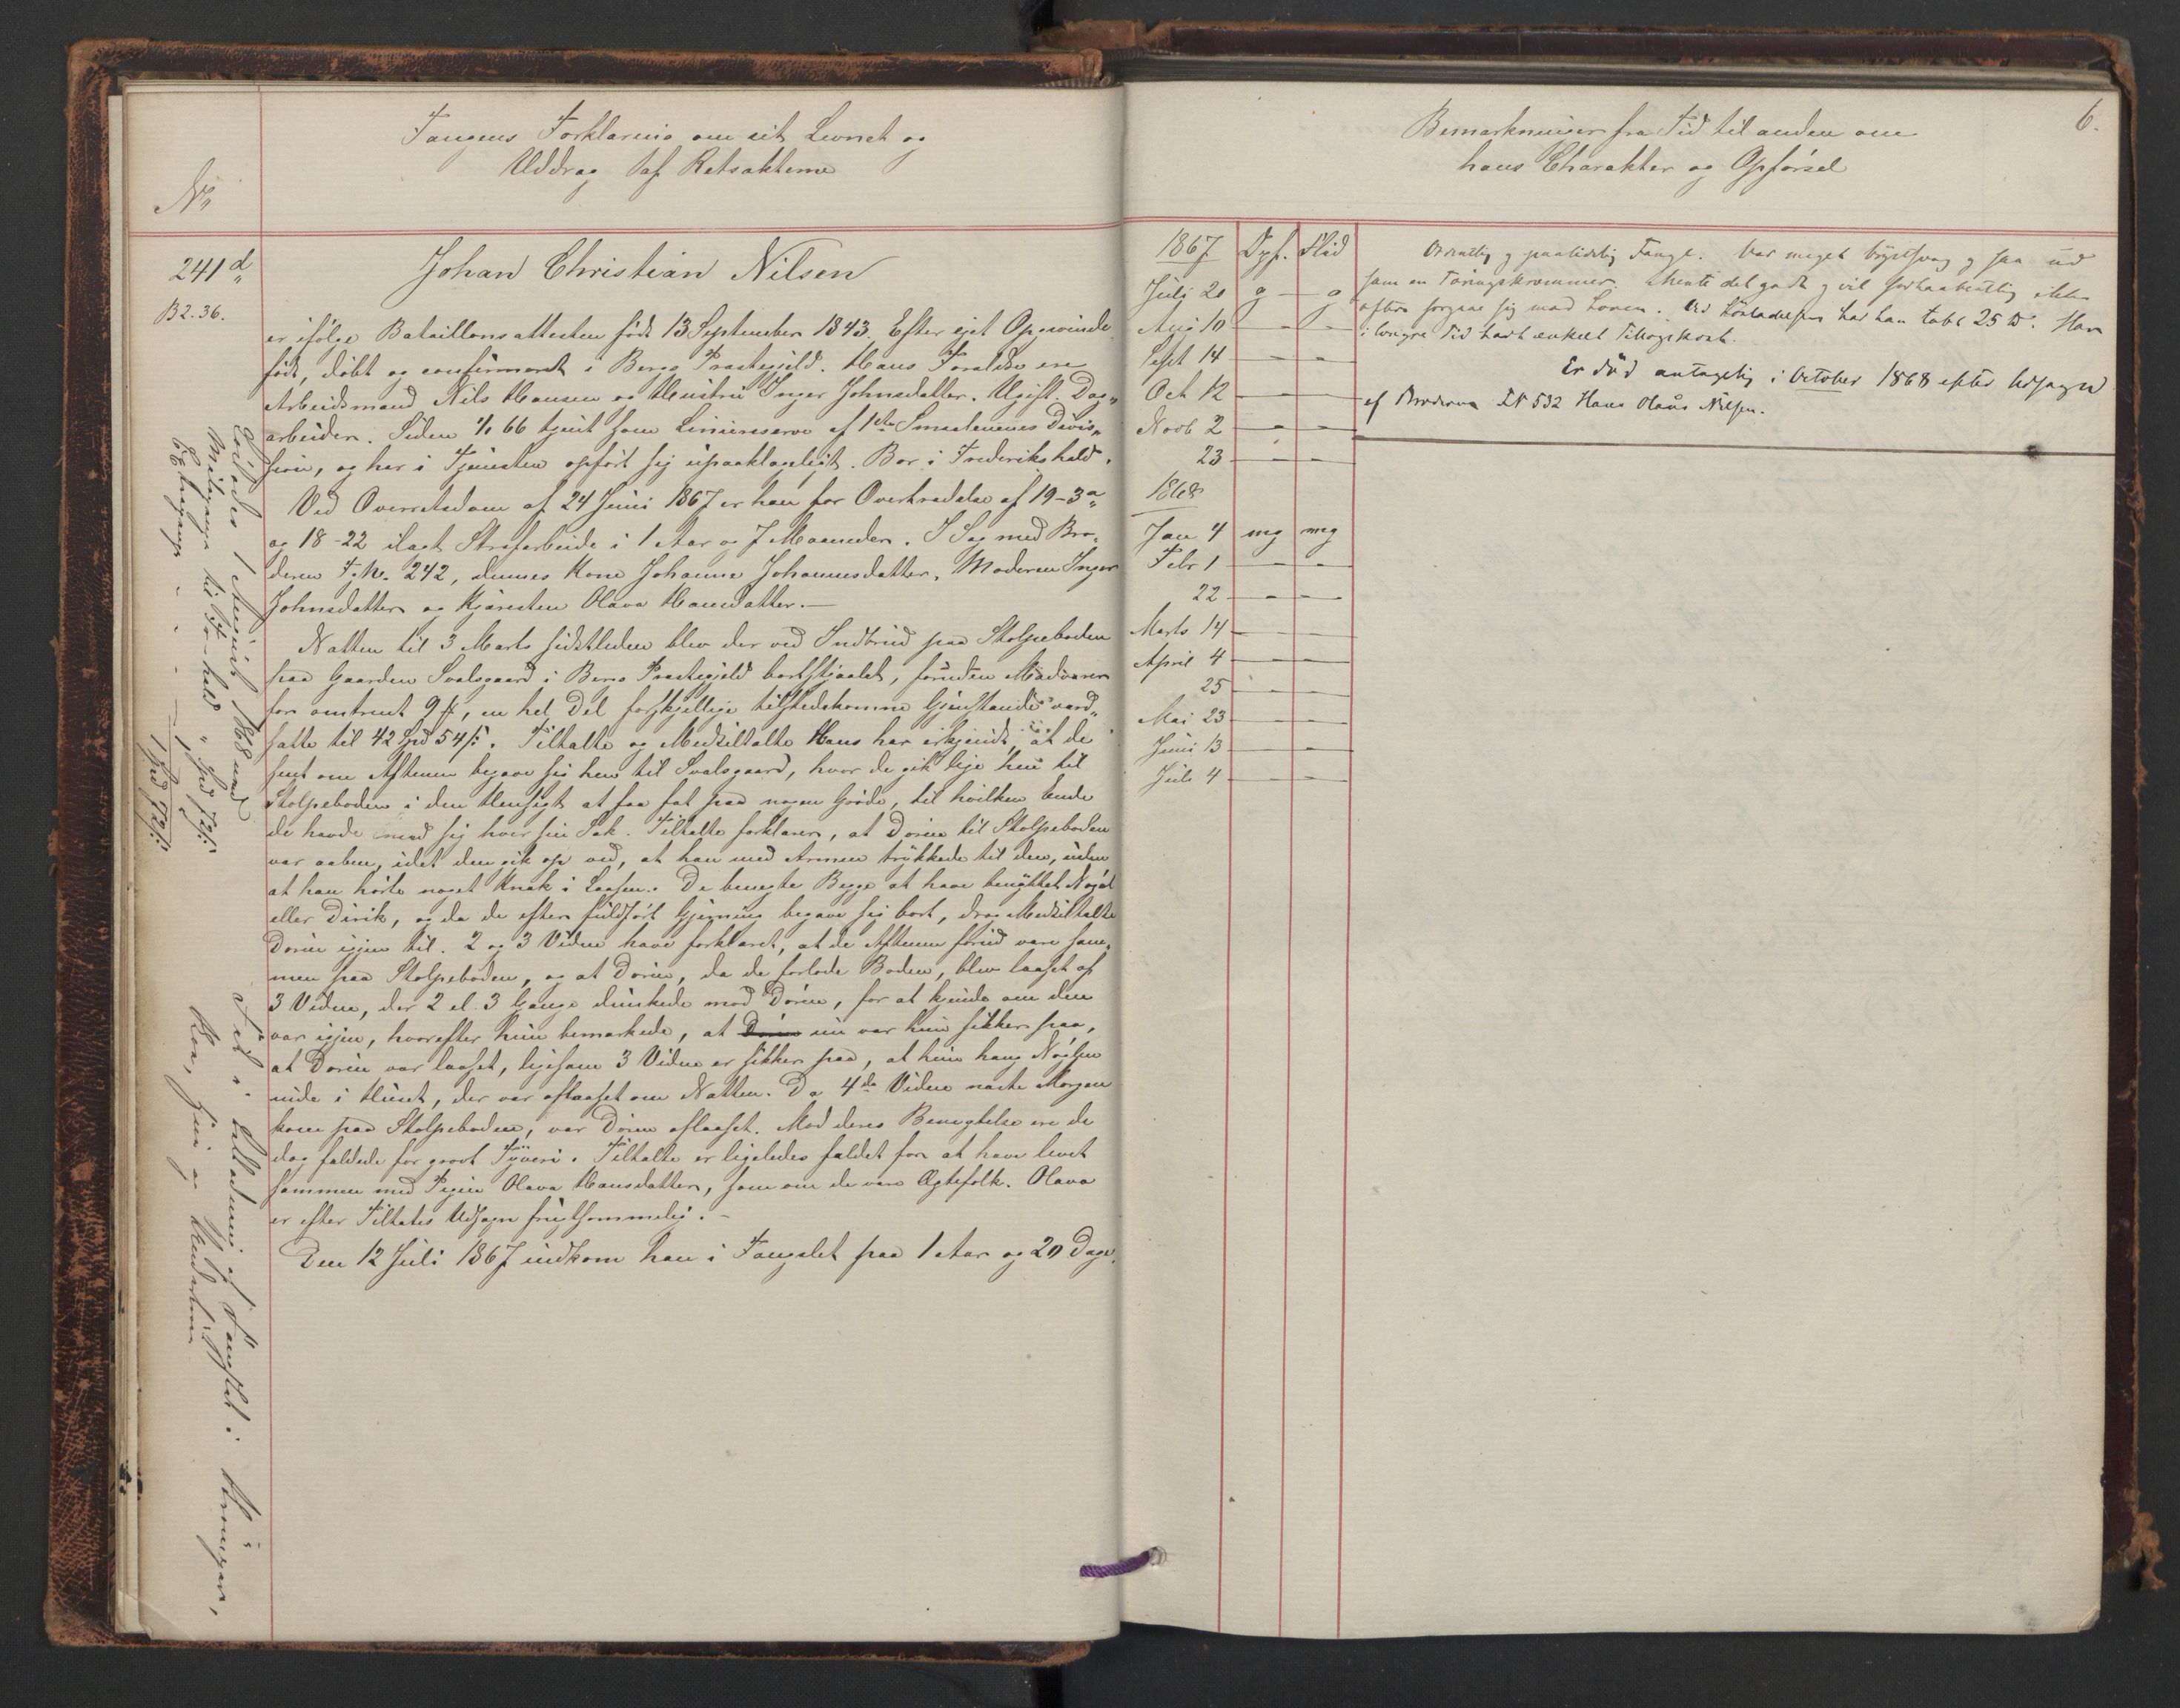 Fangens Forklaring om sit Levnet og
Uddrag af Retsakterne
No
241 d
B2. 36.
Johan Christian Nilsen
er ifølge Bataillonsattesten født 13 September 1843. Efter eget Opgivende
født, døbt og confirmeret i Bergs Præstegjeld. Hans Forældre ere
Arbeidsmand Nils Hansen og Hustru Inger Johnsdatter. Ugift. Dag„
arbeider. Siden 1/1 66 tjent som Liniereserve af 1ste Smaalenenes Divis„
sion, og har i Tjenesten opført sig upaaklageligt. Bor i Frederikshald.
Ved Overretsdom af 24 Juni 1867 er han for Overtrædelse af 19-3 a„
og 18-22 ilagt Strafarbeide i 1 Aar og 7 Maaneder. I Sag med Bro„
deren F. No. 242, dennes Kone Johanne Johannesdatter, Moderen Inger
Johnsdatter og Kjæresten Olava Hansdatter.—
Natten til 3 Marts sidstleden blev der ved Indbrud paa Stolpeboden
paa Gaarden Svalsgaard i Bergs Præstegjeld bortstjaalet, foruden Madvarer
for omtrent 9 ß, en hel Del forskjellige tilstedekomne Gjenstande værd„
satte til 42 Spd 54 ß. Tiltalte og Medtiltalte Hans har erkjendt, at de
sent om Aftenen begave sig hen til Svalsgaard, hvor de gik lige hen til
Stolpeboden i den Hensigt at faa fat paa nogen Føde, til hvilken Ende
de havde med sig hver sin Sæk. Tiltalte forklarer, at Døren til Stolpeboden
var aaben, idet den gik op ved, at han med Armen trykkede til den, uden
at han hørte noget Knæk i Laasen. De benegte Begge at have benyttet Nøgel
eller Dirik, og da de efter fuldført Gjerning begave sig bort, drog Medtiltalte
Døren igjen til. 2 og 3 Vidne have forklaret, at de Aftenen forud vare sam„
men paa Stolpeboden, og at Døren, da de forlode Boden, blev laaset af
3 Vidne, der 2 el. 3 Gange dunkede mod Døren, for at kjende om den
var igjen, hvorefter hun bemærkede, at Døren nu var hun sikker paa,
at Døren var laaset, ligesom 3 Vidne er sikker paa, at hun hang Nøglen
inde i Huset, der var aflaaset om Natten. Da 4de Vidne næste Morgen
kom paa Stolpeboden, var Døren aflaaset. Mod deres Benegtelse ere de
dog fældede for grovt Tyveri. Tiltalte er ligeledes fældet for at have levet
sammen med Pigen Olava Hansdatter, som om de vare Ægtefolk. Olava
er efter Tiltaltes Udsagn frugtsommelig.—
Den 12 Juli 1867 indkom han i Fangslet paa 1 Aar og 20 Dage.
Løslades 1 August 1868 med
Reisepenge til F-hald „ Spd 72 ß
Extrapenge - - - 1 „ „
1 Spd 72 ß
Fed i Anledning af Fangslet:
6.
Bemærkninger fra Tid til anden om
hans Charakter og Opførsel
1867 Opf. Flid
Juli 20 g — g
Aug 10 — —
Sept 14 — —
Oct 12 — —
Novb 2 — —
23 — —
1868
Jan 4 mg mg
Febr 1 — —
22 — —
Marts 14 — —
April 4 — —
25 — —
Mai 23 — —
Juni 13 — —
Juli 4 — —
Ordentlig og paalidelig Fange. Var meget brystsvag og saa ud
som en Tæringskrammer. Mente det godt og vil forhaabentlig ikke
oftere forgaae sig mod Loven. Ved Løsladelsen har han tabt 25 ℔. Han
i længre Tid havt enkelt Tillægskost.
Er død antagelig i October 1868 efter Udsagn
af Broderen FN 532 Hans Olaus Nilsen.